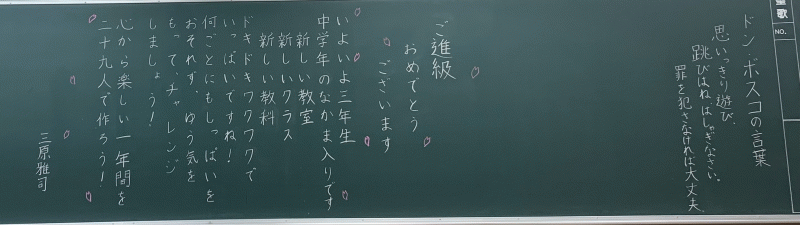 聖歌
NO.
ドン・ボスコの言葉
思いっきり遊び、
跳びはね、はしゃぎなさい。
罪を犯さなければ大丈夫
ご進級
おめでとう
ございます
いよいよ三年生
中学年のなかま入りです
新しい教室
新しいクラス
新しい教科
ドキドキワクワクで
いっぱいですね!
何ごとにもしっぱいを
おそれず、ゆう気を
もって、チャレンジ
しましょう!
心から楽しい一年間を
二十九人で作ろう!
三原雅司